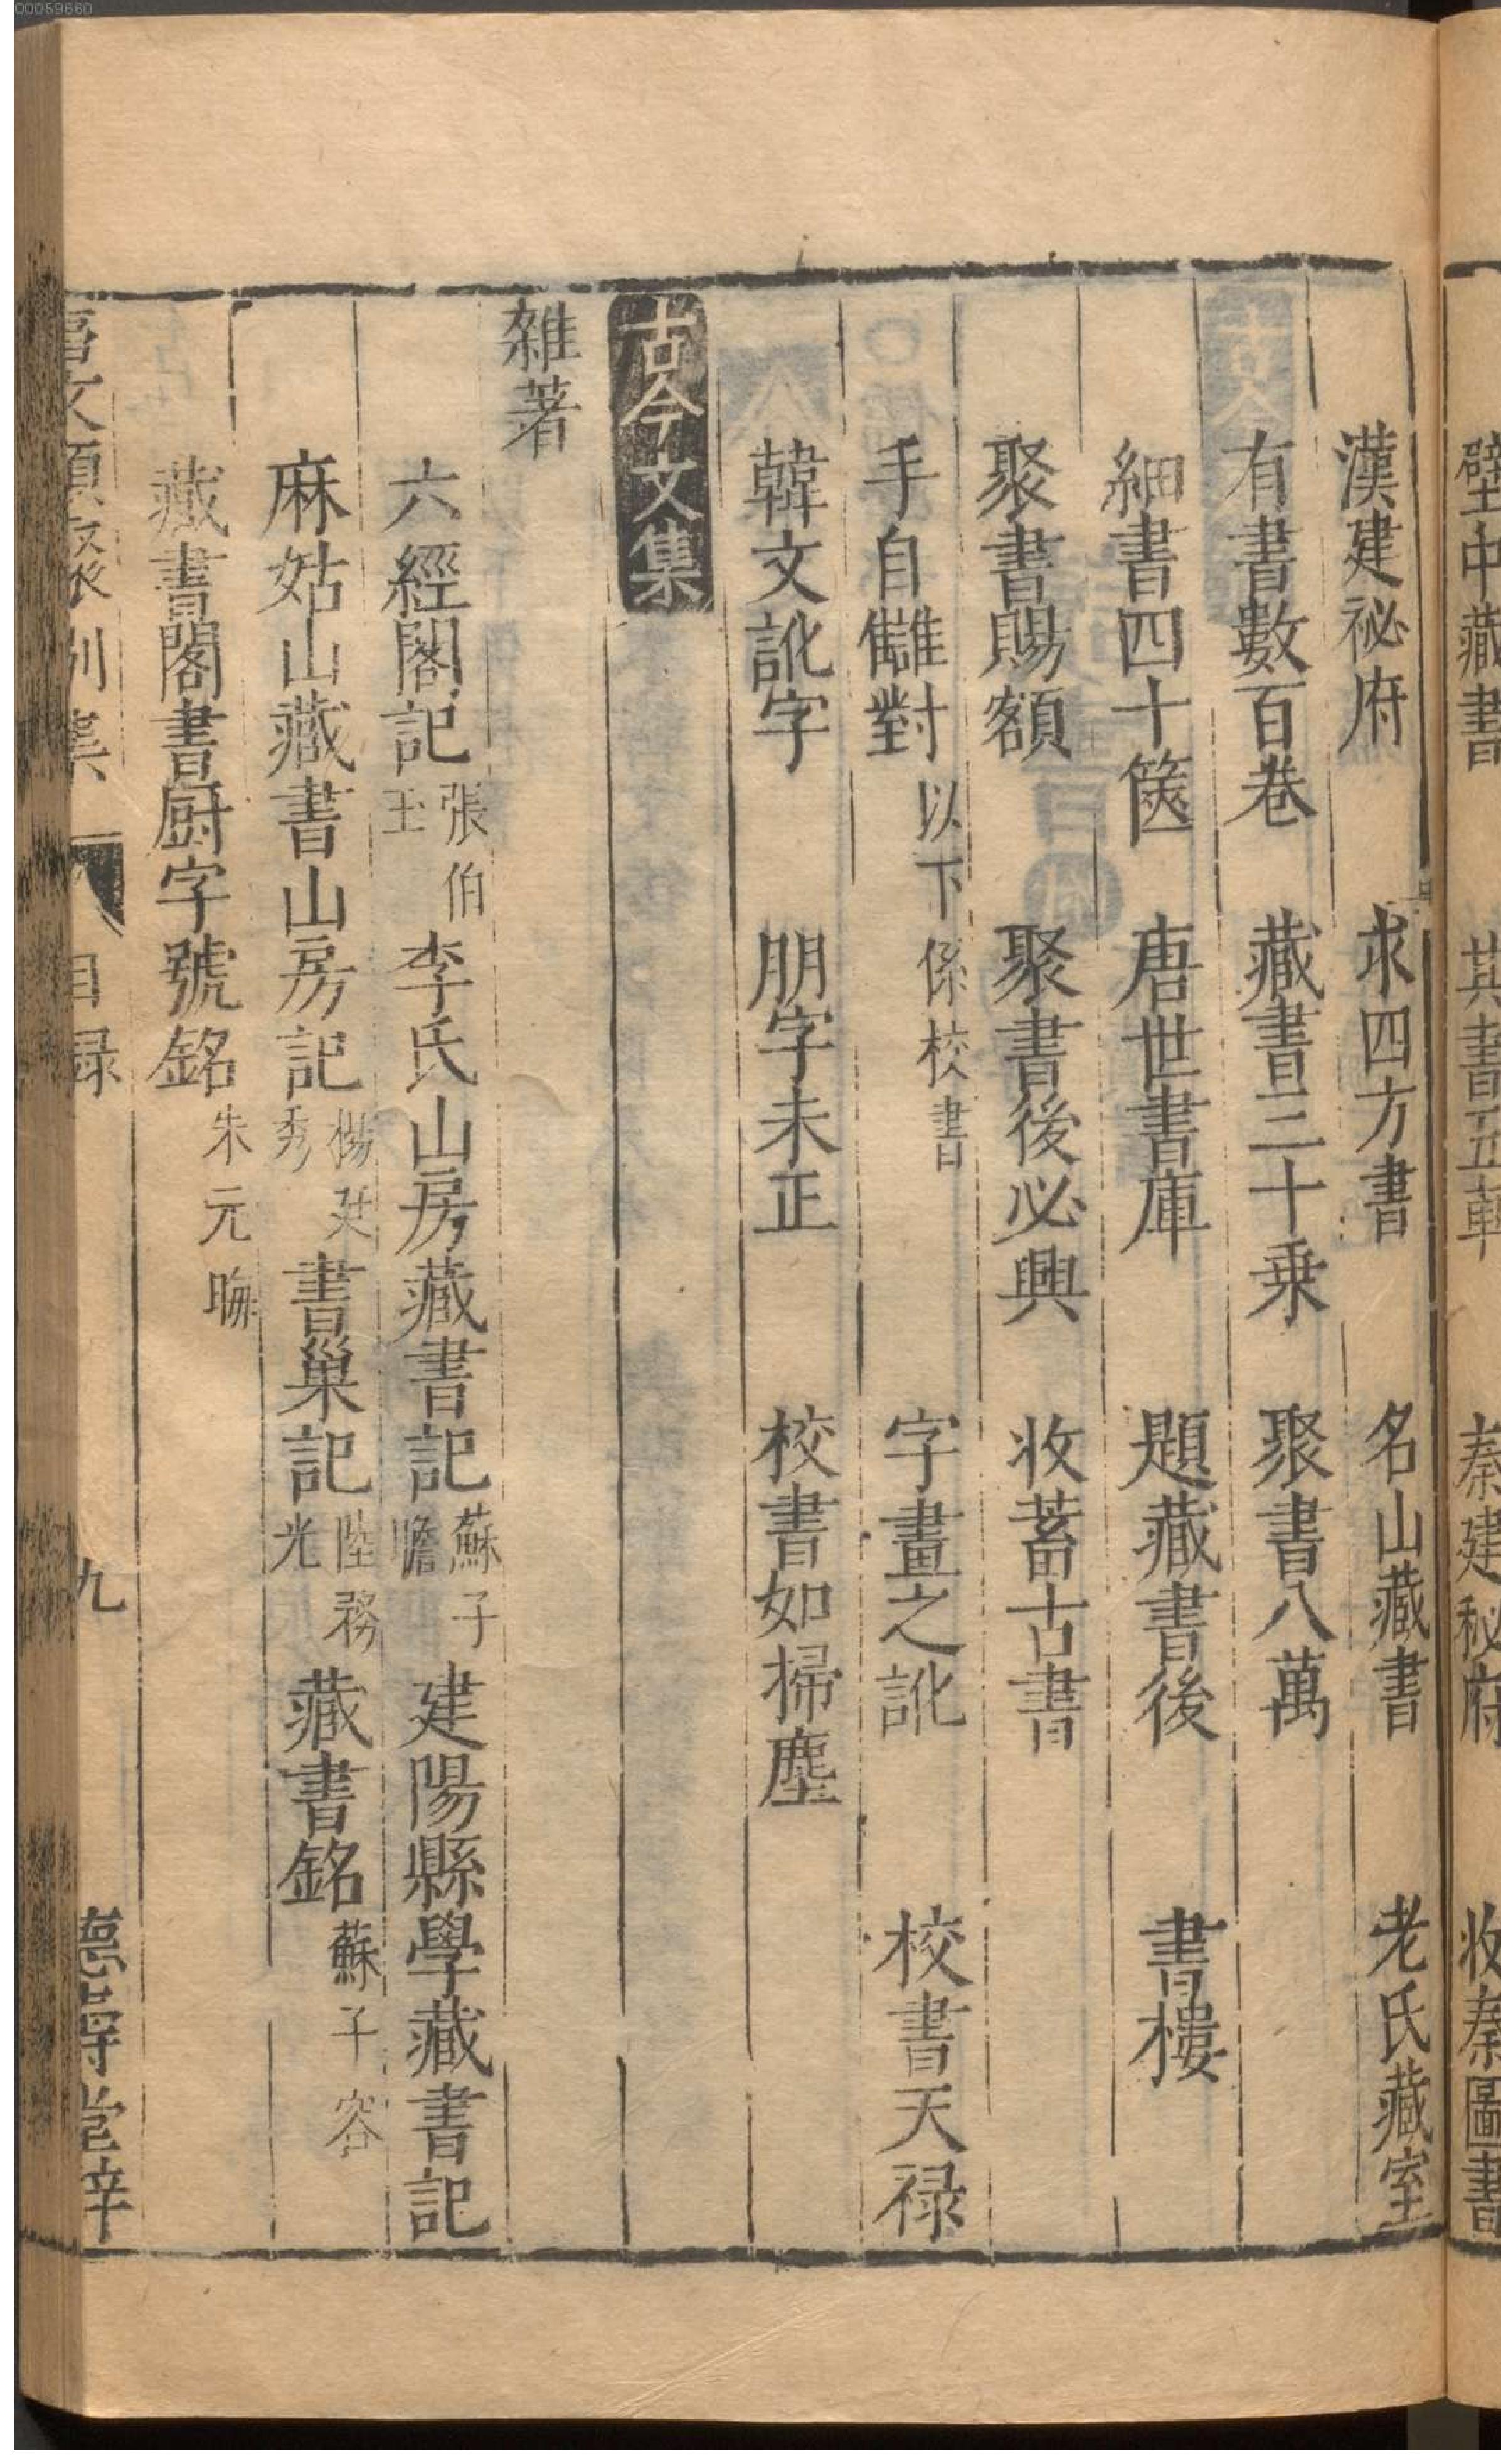 00059660
壁中藏書 其書五車 秦建秘府 收秦圖書
漢建祕府 求四方書 名山藏書 老氏藏室
有書數百卷 藏書三十乗 聚書八萬
細書四十篋 唐世書庫 題藏書後 書樓
聚書賜額 聚書後必興 收蓄古書
手自讎對以下係校書 字畫之訛 校書天禄
韓文訛字 朋字未正 校書如掃塵
古今文集
雜著
六經閣記張伯玉 李氏山房藏書記蘇子瞻 建陽縣學藏書記
麻姑山藏書山房記楊廷秀 書巢記陸務光 藏書銘蘇子容
藏書閣書厨字號銘朱元晦
事文類聚別集 目録 九 德壽堂梓